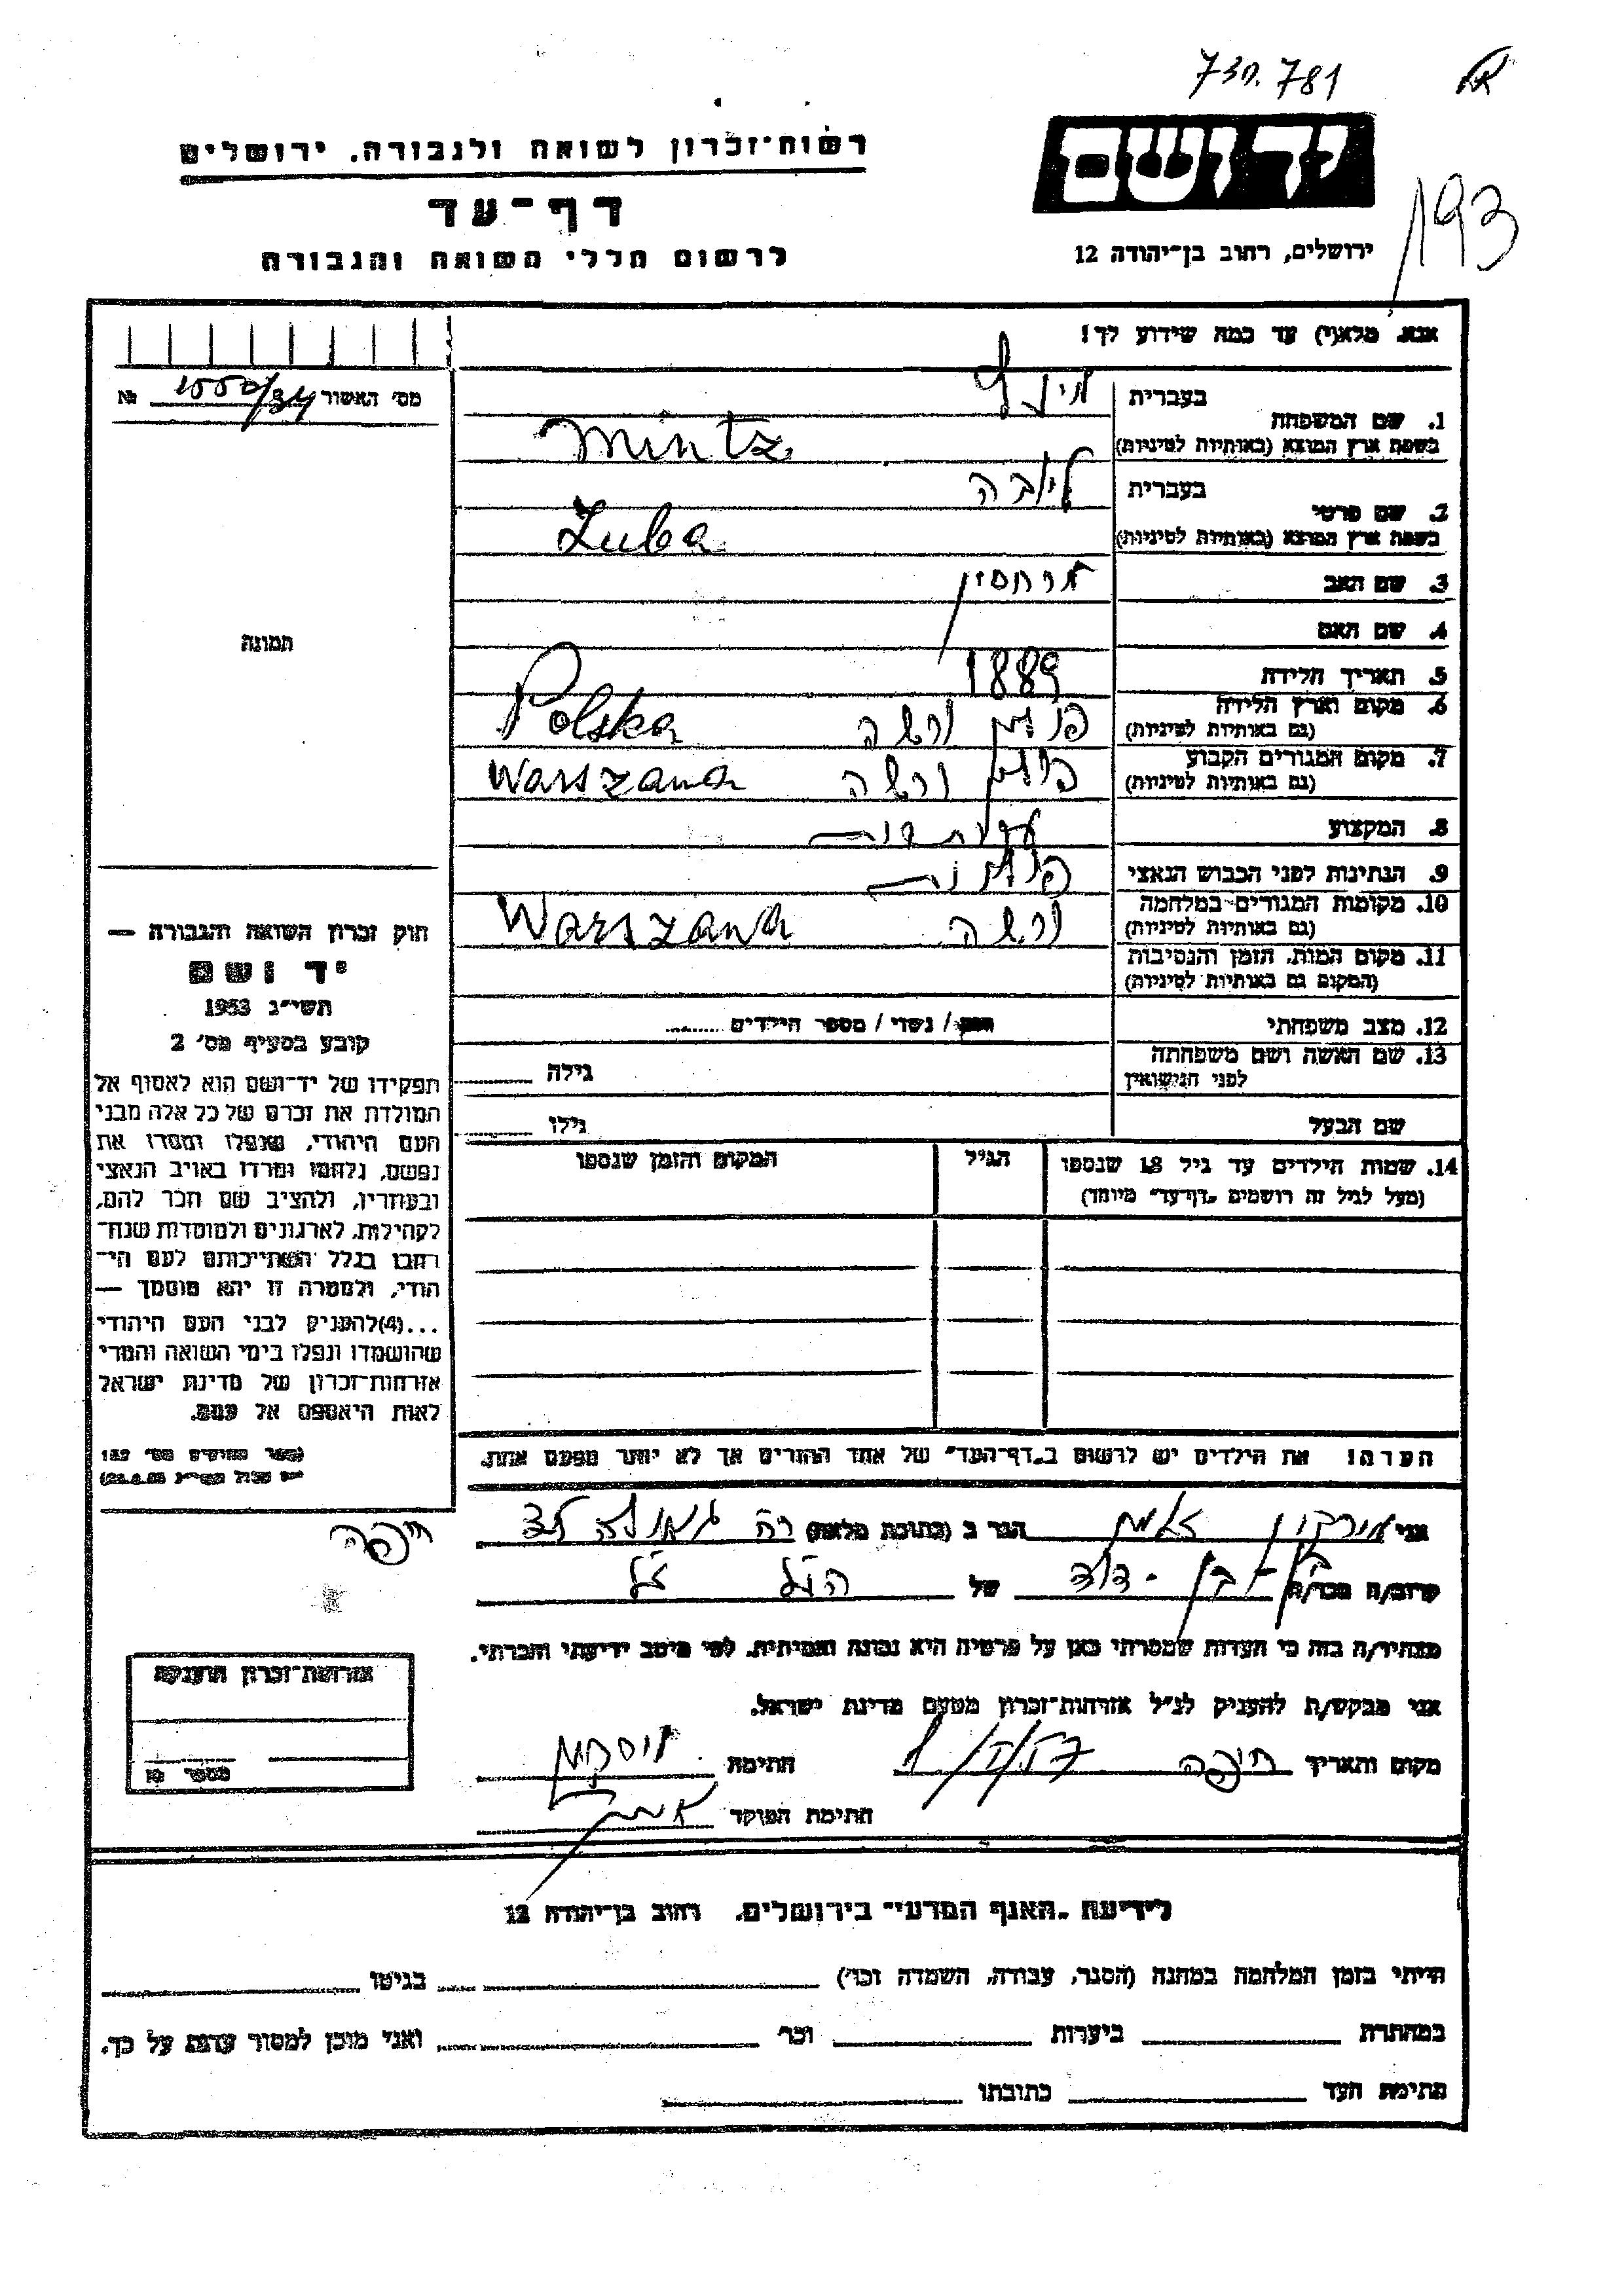 730.781
193
יד ושם
ירושלים, רחוב בן־יהודה 12
רשות־זכרון לשואה ולגבורה, ירושלים
דף־עד
לרשום חללי השואה והגבורה
אנא, מלא(י) עד כמה שידוע לך!
מס׳ האשור №
1. שם המשפחה בעברית מינץ
בשפת ארץ המוצא (באותיות לטיניות) Mintz
2. שם פרטי בעברית ליובה
בשפת ארץ המוצא (באותיות לטיניות) Luba
3. שם האב
4. שם האם
5. תאריך הלידה 1889
6. מקום וארץ הלידה פולין ורשה Polska
(גם באותיות לטיניות)
7. מקום המגורים הקבוע פולין ורשה Warszawa
(גם באותיות לטיניות)
8. המקצוע
9. הנתינות לפני הכבוש הנאצי פולנית
10. מקומות המגורים במלחמה ורשה Warszawa
(גם באותיות לטיניות)
11. מקום המות, הזמן והנסיבות
(המקום גם באותיות לטיניות)
12. מצב משפחתי רווק / נשוי / מספר הילדים
13. שם האשה ושם משפחתה
לפני הנישואין גילה
שם הבעל גילו
14. שמות הילדים עד גיל 18 שנספו הגיל המקום והזמן שנספו
(מעל לגיל זה רושמים „דף־עד״ מיוחד)
הערה! את הילדים יש לרשום ב„דף־העד״ של אחד ההורים אך לא יותר מפעם אחת.
תמונה
חוק זכרון השואה והגבורה —
יד ושם
תשי״ג 1953
קובע בסעיף מס׳ 2
תפקידו של יד־ושם הוא לאסוף אל
המולדת את זכרם של כל אלה מבני
העם היהודי, שנפלו ומסרו את
נפשם, נלחמו ומרדו באויב הנאצי
ובעוזריו, ולהציב שם וזכר להם,
לקהילות, לארגונים ולמוסדות שנח־
רבו בגלל השתייכותם לעם הי־
הודי, ולמטרה זו יהא מוסמך —
...(4)להעניק לבני העם היהודי
שהושמדו ונפלו בימי השואה והמרי
אזרחות־זכרון של מדינת ישראל
לאות היאספם אל עמם.
אני הגר ב (כתובת מלאה) רח גאולה
חיפה
קרוב/ה מכר/ה בן-דוד של הנ״ל
מצהיר/ה בזה כי העדות שמסרתי כאן על פרטיה היא נכונה ואמיתית, לפי מיטב ידיעתי והכרתי.
אני מבקש/ת להעניק לנ״ל אזרחות־זכרון מטעם מדינת ישראל.
מקום ותאריך חיפה חתימת
חתימת הפוקד
אזרחות־זכרון הוענקה
מספר №
לידיעת „האגף המדעי״ בירושלים, רחוב בן־יהודה 12
הייתי בזמן המלחמה במחנה (הסגר, עבודה, השמדה וכו׳) בגיטו
במחתרת ביערות וכו׳ ואני מוכן למסור עדות על כך.
חתימת העד כתובתו